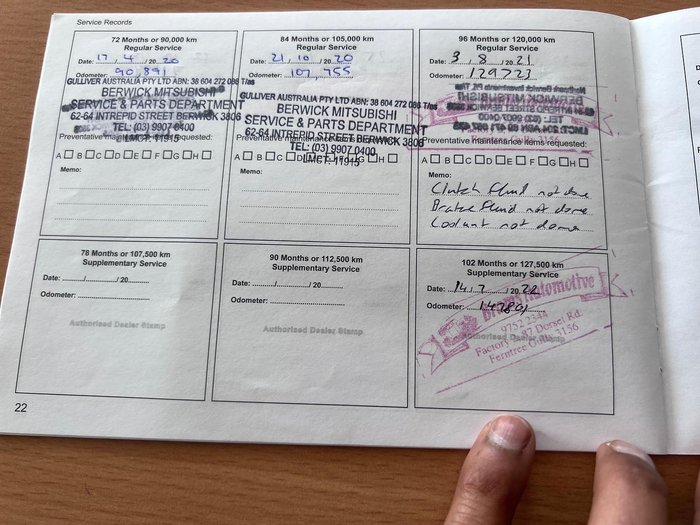 Service Records
72 Months or 90,000 km
Regular Service
Date: 17 / 4 / 20 20
Odometer: 90,891
GULLIVER AUSTRALIA PTY LTD ABN: 38 604 272 088 T/as
BERWICK MITSUBISHI
SERVICE & PARTS DEPARTMENT
62-64 INTREPID STREET BERWICK 3806
TEL: (03) 9907 0400
LMCT: 11915
Preventative maintenance items requested:
A B C D E F G H
Memo:
84 Months or 105,000 km
Regular Service
Date: 21 / 10 / 20 20
Odometer: 107,755
GULLIVER AUSTRALIA PTY LTD ABN: 38 604 272 088 T/as
BERWICK MITSUBISHI
SERVICE & PARTS DEPARTMENT
62-64 INTREPID STREET BERWICK 3806
TEL: (03) 9907 0400
LMCT: 11915
Preventative maintenance items requested:
A B C D E F G H
Memo:
96 Months or 120,000 km
Regular Service
Date: 3 / 8 / 20 21
Odometer: 129723
3156
Preventative maintenance items requested:
A B C D E F G H
Memo:
Clutch fluid not done
Brake fluid not done
Coolant not done
78 Months or 107,500 km
Supplementary Service
Date: / / 20
Odometer:
Authorised Dealer Stamp
90 Months or 112,500 km
Supplementary Service
Date: / / 20
Odometer:
Authorised Dealer Stamp
102 Months or 127,500 km
Supplementary Service
Date: 14 / 7 / 20 22
Odometer: 147801
Authorised Dealer Stamp
Automotive
9752 2344
Factory 87 Dorset Rd.
Ferntree 3156
22